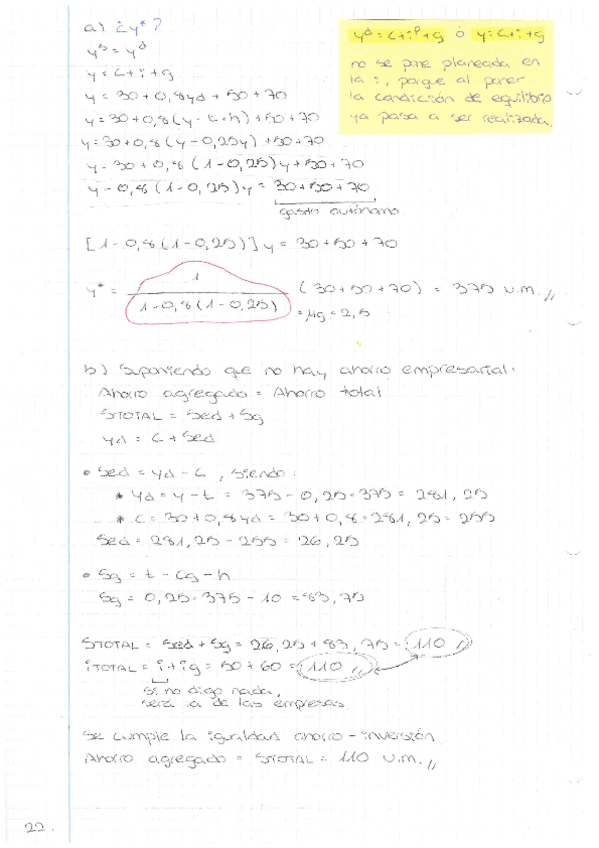 a) ¿y* ?
yᵈ = c+iᵖ+g ó y=c+i+g
no se pone planeada en
la i, porque al poner
la condición de equilibrio
ya pasa a ser realizada.
yˢ = yᵈ
y = c+i+g
y = 30+0,8yd + 50 + 70
y = 30+0,8(y-t+h)+50+70
y = 30+0,8(y-0,25y)+50+70
y = 30+0,8(1-0,25)y+50+70
y-0,8(1-0,25)y = 30+50+70
gasto autónomo
[1-0,8(1-0,25)]y = 30+50+70
y* = 1 / 1-0,8(1-0,25) (30+50+70) = 375 u.m.//
= μg = 2,5
b) Suponiendo que no hay ahorro empresarial:
Ahorro agregado = Ahorro total
STOTAL = Sed + Sg
yd = c + Sed
• Sed = yd - c , siendo:
* yd = y - t = 375 - 0,25·375 = 281,25
* c = 30+0,8yd = 30+0,8·281,25 = 255
Sed = 281,25 - 255 = 26,25
• Sg = t - cg - h
Sg = 0,25·375 - 10 = 83,75
STOTAL = Sed + Sg = 26,25 + 83,75 = 110 //
iTOTAL = i + ig = 50 + 60 = 110 //
si no digo nada,
será la de las empresas
Se cumple la igualdad ahorro-inversión
Ahorro agregado = STOTAL = 110 u.m.//
22.